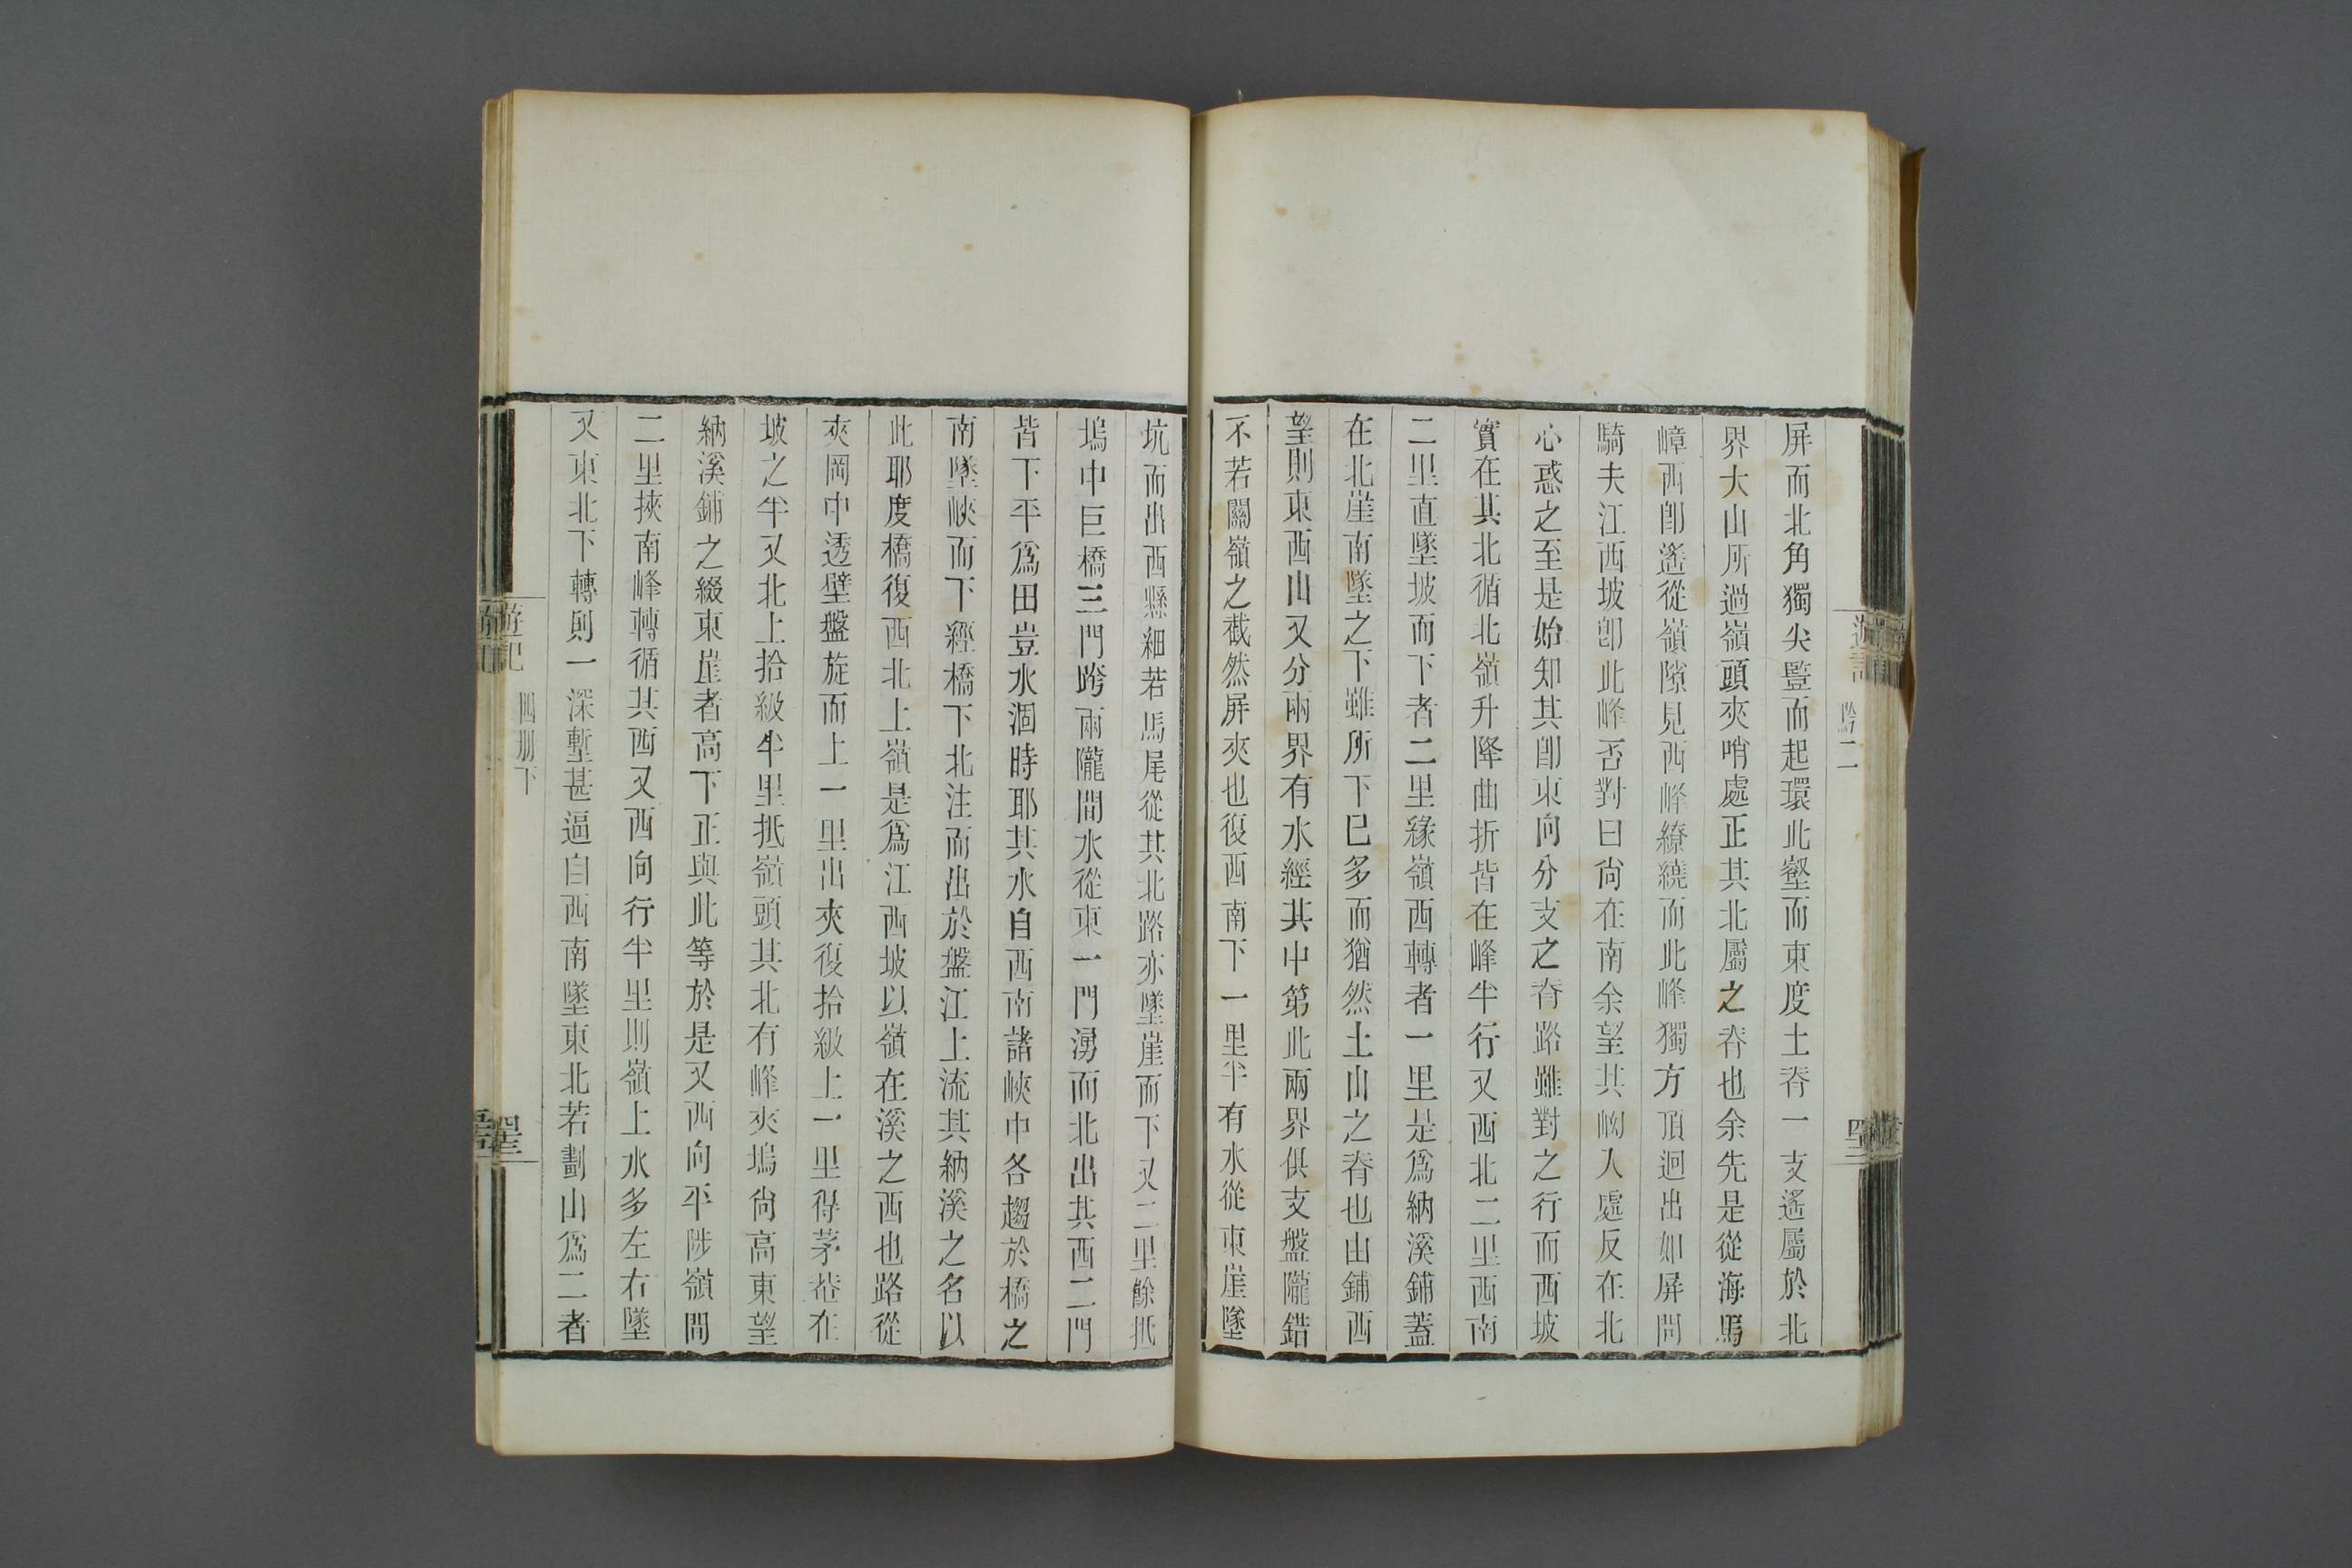 屏而北角獨尖豎而起環此壑而東度土脊一支遙屬於北
界大山所過嶺頭夾哨處正其北屬之脊也余先是從海馬
嶂西卽遙從嶺隙見西峰繚繞而此峰獨方頂迥出如屏問
騎夫江西坡卽此峰否對曰尙在南余望其坳入處反在北
心惑之至是始知其卽東向分支之脊路雖對之行而西坡
實在其北循北嶺升降曲折皆在峰半行又西北二里西南
二里直墜坡而下者二里緣嶺西轉者一里是爲納溪鋪蓋
在北崖南墜之下雖所下已多而猶然土山之脊也由鋪西
望則東西山又分兩界有水經其中第此兩界俱支盤隴錯
不若關嶺之截然屏夾也復西南下一里半有水從東崖墜
坑而出西懸細若馬尾從其北路亦墜崖而下又二里餘抵
塢中巨橋三門跨兩隴間水從東一門湧而北出其西二門
皆下平爲田豈水涸時耶其水自西南諸峽中各趨於橋之
南墜峽而下經橋下北注而出於盤江上流其納溪之名以
此耶度橋復西北上嶺是爲江西坡以嶺在溪之西也路從
夾岡中透壁盤旋而上一里出夾復拾級上一里得茅菴在
坡之半又北上拾級半里抵嶺頭其北有峰夾塢尙高東望
納溪鋪之綴東崖者高下正與此等於是又西向平陟嶺間
二里挾南峰轉循其西又西向行半里則嶺上水多左右墜
又東北下轉則一深塹甚逼自西南墜東北若劃山爲二者
遊記 四册下